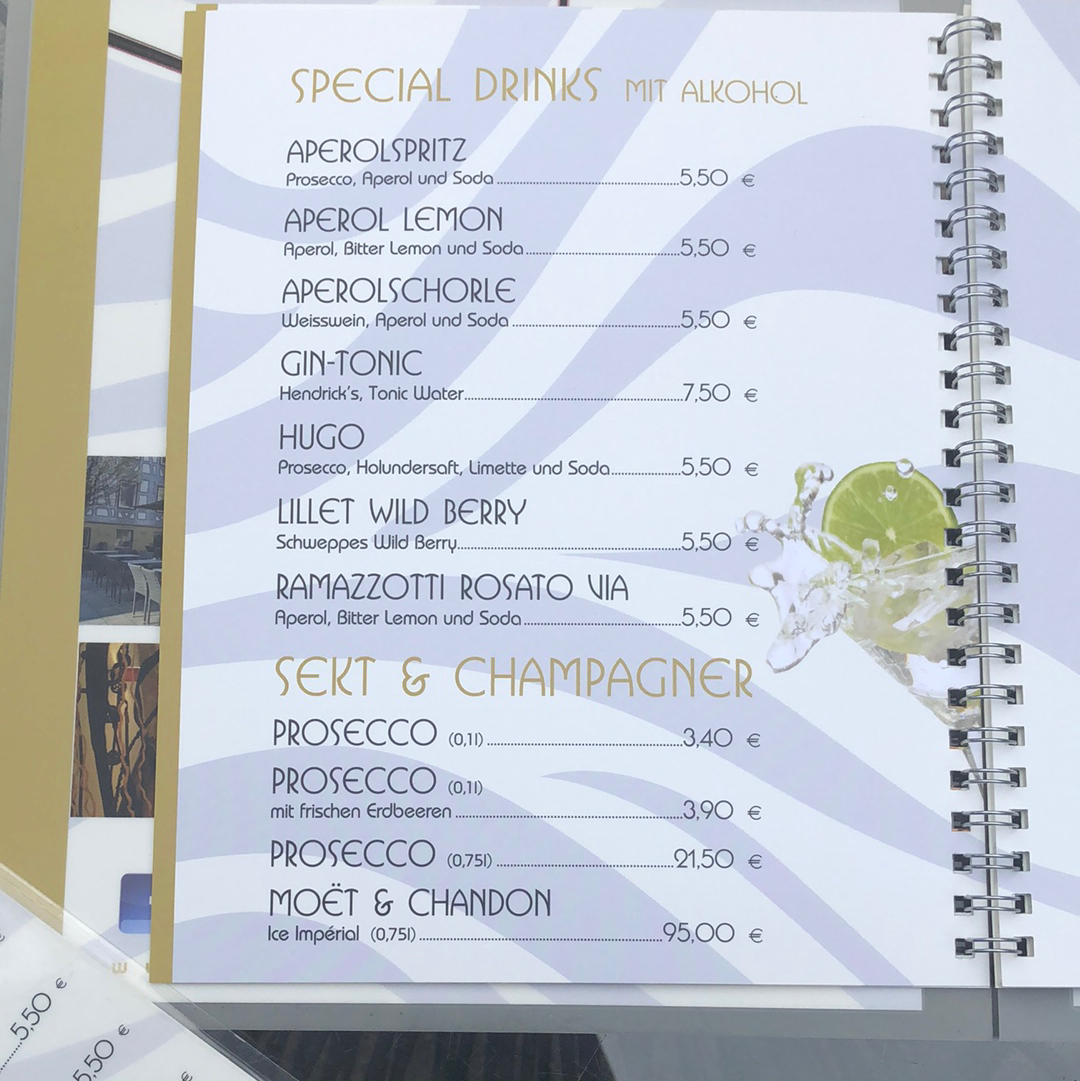 SPECIAL DRINKS MIT ALKOHOL
APEROLSPRITZ
Prosecco, Aperol und Soda........................5,50 €
APEROL LEMON
Aperol, Bitter Lemon und Soda........................5,50 €
APEROLSCHORLE
Weisswein, Aperol und Soda........................5,50 €
GIN-TONIC
Hendrick's, Tonic Water........................7,50 €
HUGO
Prosecco, Holundersaft, Limette und Soda........................5,50 €
LILLET WILD BERRY
Schweppes Wild Berry........................5,50 €
RAMAZZOTTI ROSATO VIA
Aperol, Bitter Lemon und Soda........................5,50 €
SEKT & CHAMPAGNER
PROSECCO (0,1l)........................3,40 €
PROSECCO (0,1l)
mit frischen Erdbeeren........................3,90 €
PROSECCO (0,75l)........................21,50 €
MOËT & CHANDON
Ice Impérial (0,75l)........................95,00 €
W
€
5,50 €
5,50 €
€